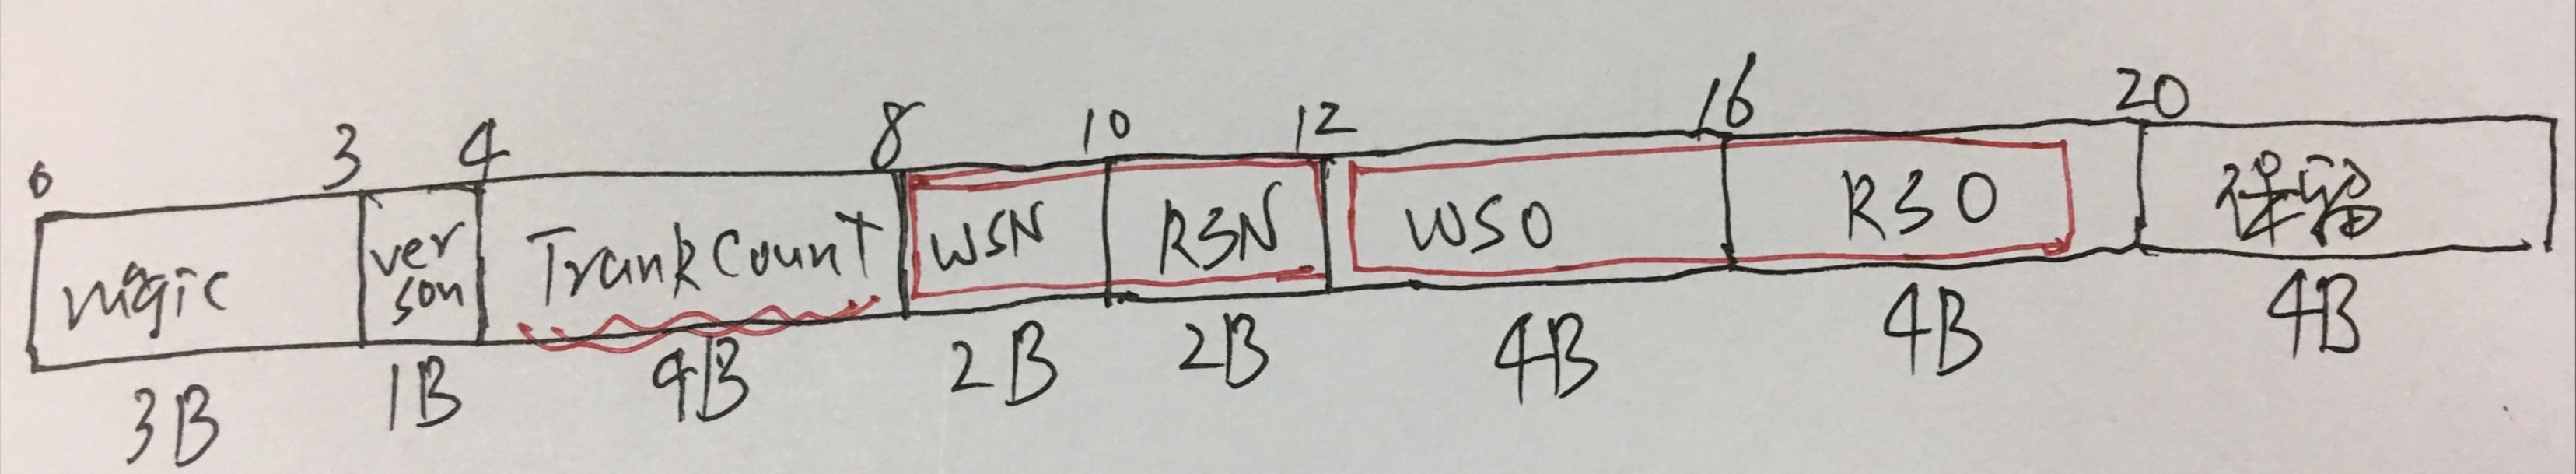 0 3 4 8 10 12 16 20
magic ver son TrankCount WSN RSN WSO RSO 保留
3B 1B 4B 2B 2B 4B 4B 4B